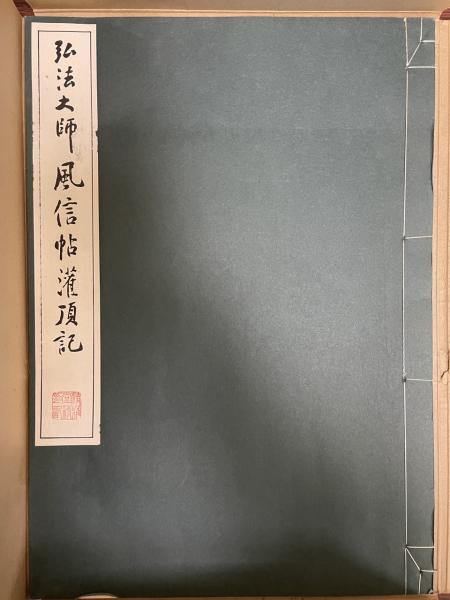 弘法大師風信帖灌頂記